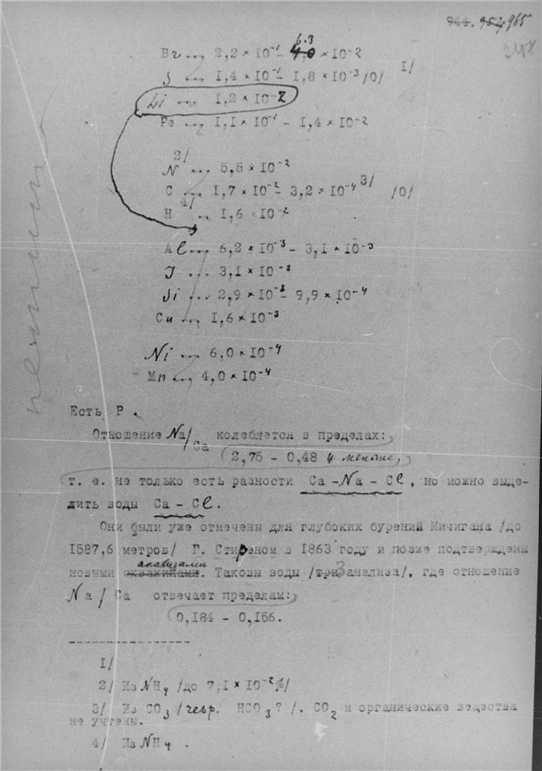 944. 954, 965
Br ... 2,2 × 10⁻¹ - 4,0 × 10⁻² 6.3
J ... 1,4 × 10⁻¹ - 1,8 × 10⁻³ /0/ 1/
Li ... 1,2 × 10⁻²
Fe ... 1,1 × 10⁻¹ - 1,4 × 10⁻²
N 2/ ... 5,5 × 10⁻²
C ... 1,7 × 10⁻² - 3,2 × 10⁻⁴ 3/ /0/
H 4/ .. 1,6 × 10⁻²
Al ... 6,2 × 10⁻³ - 3,1 × 10⁻³
J ... 3,1 × 10⁻³
Si ... 2,9 × 10⁻³ - 9,9 × 10⁻⁴
Cu ... 1,6 × 10⁻³
Ni ... 6,0 × 10⁻⁴
Mn ... 4,0 × 10⁻⁴
Есть P.
Отношение Na/Ca колеблется в пределах:
2,75 - 0,48 и меньше,
т. е. не только есть разности Ca - Na - Cl, но можно выде-
лить воды Ca - Cl.
Они были уже отмечены для глубоких бурений Мичигана /до
1587,6 метров/ Г. Стиреном в 1863 году и позже подтверждены
новыми анализами. Таковы воды /три 3 анализа/, где отношение
Na / Ca отвечает пределам:
0,184 - 0,156.
1/
2/ Из NH₄ /до 7,1 × 10⁻² %/
3/ Из CO₃ /чегр. HCO₃ ? /. CO₂ и органические вещества
не учтены.
4/ Из NH₄ .